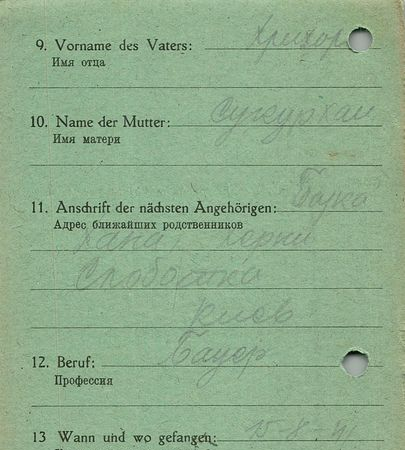 9. Vorname des Vaters:
Имя отца
10. Name der Mutter:
Имя матери
11. Anschrift der nächsten Angehörigen:
Адрес ближайших родственников
Слободка
Киев
12. Beruf: Бауер
Профессия
13 Wann und wo gefangen: 15-8-41